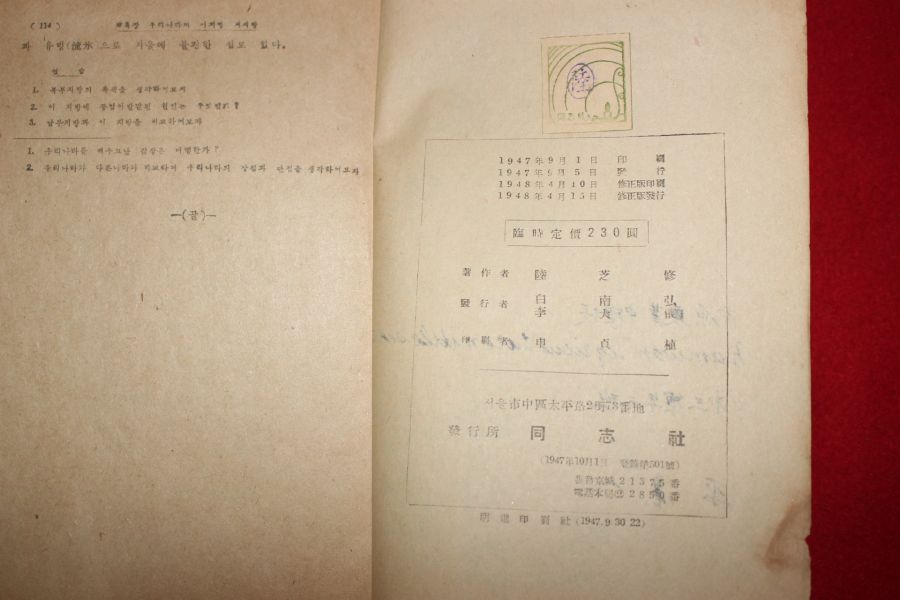 ( 114 ) 우리나라의
과 유빙(流氷)으로 겨울에 불편한 점도 있다.
연 습
1. 북부지방의 특색을 생각하여보자
2. 이 지방에 공업이발달된 원인은 무엇인가?
3. 남부지방과 이 지방을 비교하여보자
1. 우리나라를 배우고난 감상은 어떠한가?
2. 우리나라와 다른나라와 비교하여 우리나라의 장점과 단점을생각하여보자
—(끝)—
陸
1947年9月1日 印 刷
1947年9月5日 發 行
1948年4月10日 修正版印刷
1948年4月15日 修正版發行
臨時定價230圓
著作者 陸 芝 修
發行者 白 南 弘
李 大
印刷者 申 貞 植
서울市中區太平路2街73番地
發行所 同 志 社
(1947年10月1日 登錄第501號)
振替京城21375番
電話本局② 2850番
印刷社 (1947.9.30 22)